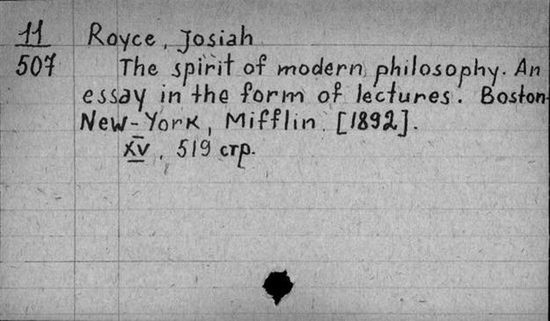 11
507
Royce, Josiah
The spirit of modern philosophy. An
essay in the form of lectures. Boston-
New-York, Mifflin [1892].
XV, 519 стр.